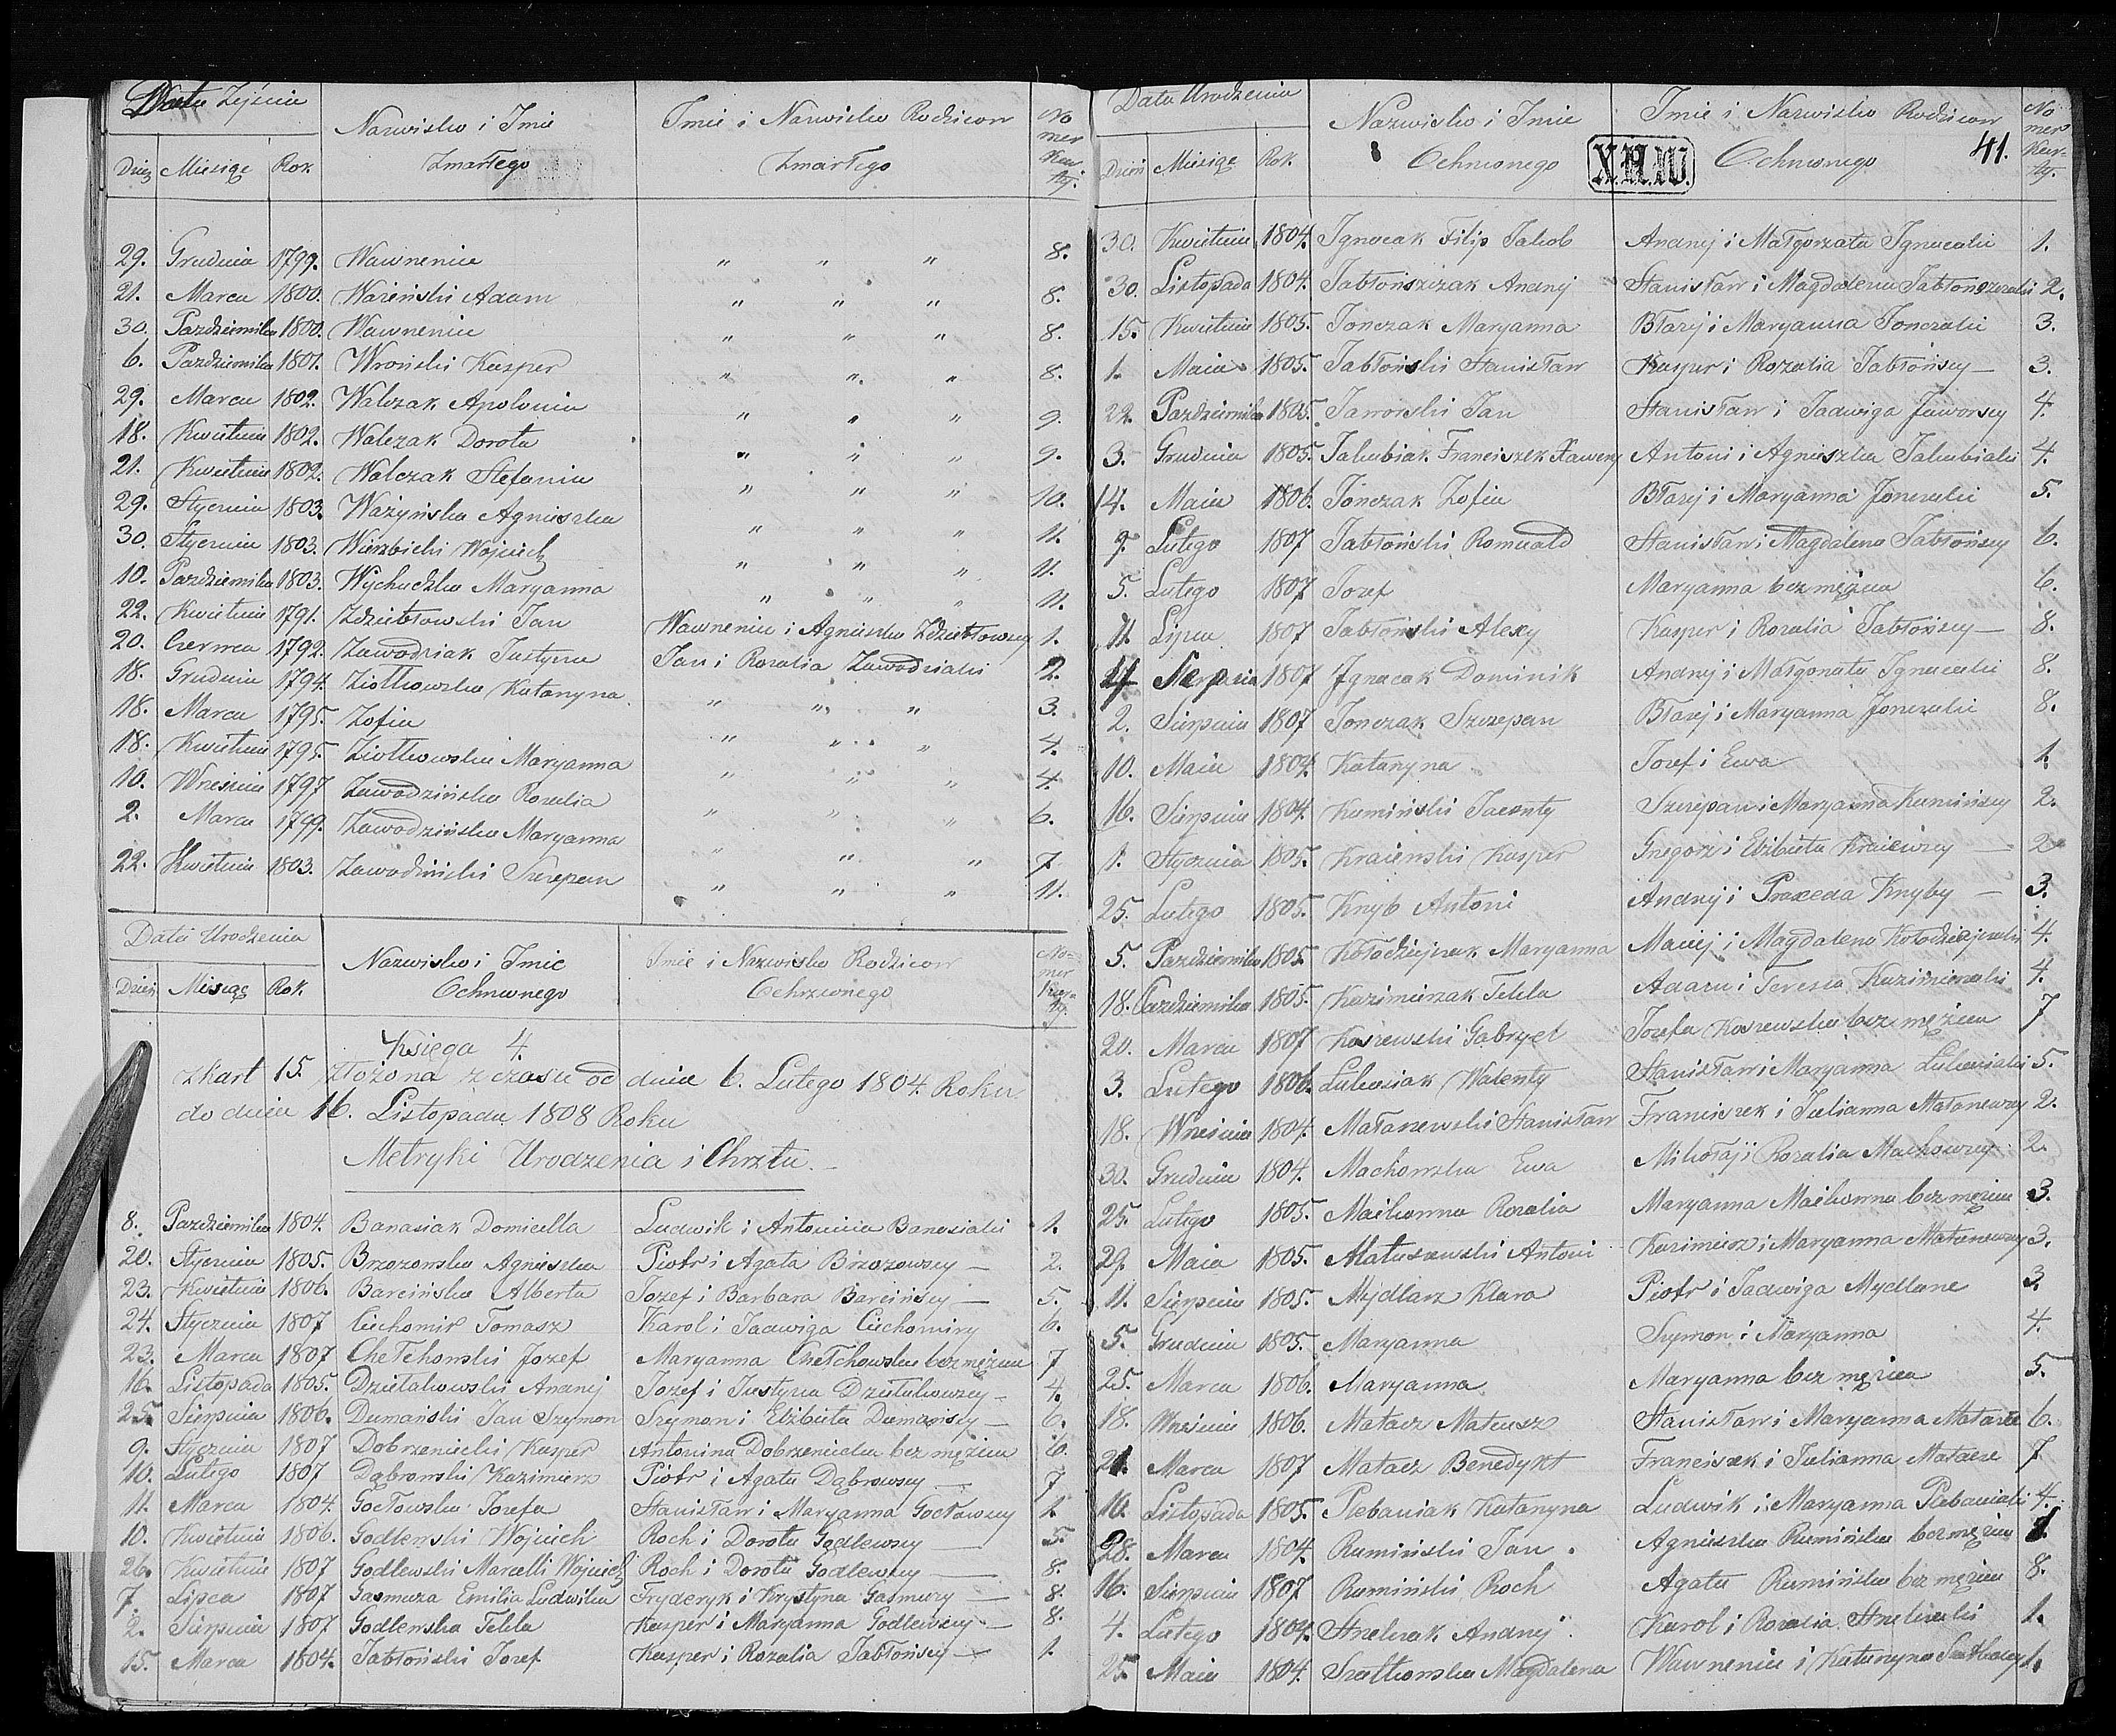 Data Zejścia
Nazwisko i Imie Zmarłego
Imie i Nazwisko Rodzicow Zmarłego
No mer Kar ty.
Dzień Miesiąc Rok
29. Grudnia 1799. Wawrzeniec " " " 8.
21. Marca 1800. Adam " " " 8.
30. Pazdziernika 1800. Wawrzeniec " " " 8.
6. Pazdziernika 1801. Wroński Kasper " " " 8.
29. Marca 1802. Walczak Apolonia " " " 9.
18. Kwietnia 1802. Walczak Dorota " " " 9.
21. Kwietnia 1802. Walczak Stefania " " " 10.
29. Stycznia 1803. Ważyńska Agnieszka " " " 11.
30. Stycznia 1803. Wierzbicki Wojciech " " " 11.
10. Pazdziernika 1803. Wychudzka Maryanna " " " 11.
22. Kwietnia 1791. Zdziebłowski Jan Wawrzeniec i Agnieszka Zdziebłowscy 1.
20. Czerwca 1792. Zawodziak Justyna Jan i Rozalia Zawodziaki 2.
18. Grudnia 1794. Ziołkowska Katarzyna " " " 3.
18. Marca 1795. Zofia " " " 4.
18. Kwietnia 1795. Ziołkowska Maryanna " " " 4.
10. Wrzesnia 1797 Zawodzińska Rozalia " " " 6.
2. Marca 1799. Zawodzińska Maryanna " " " 7
22. Kwietnia 1803. Zawodziński Szczepan " " " 11.
Data Urodzenia
Nazwisko i Imie Ochrzconego
Imie i Nazwisko Rodzicow Ochrzconego
No= mer Kar= ty.
Dzień Miesiąc Rok.
Księga 4.
z kart 15. złożona z czasu od dnia 6. Lutego 1804. Roku
do dnia 16. Listopada 1808 Roku
Metryki Urodzenia i Chrztu.
8. Pazdziernika 1804. Banasiak Domicella Ludwik i Antonina Banasiaki 1.
20. Stycznia 1805. Brzozowska Agnieszka Piotr i Agata Brzozowscy 2.
23. Kwietnia 1806. Barcińska Alberta Jozef i Barbara Barcińscy 5.
24. Stycznia 1807 Cichomir Tomasz Karol i Jadwiga Cichomiry 6.
23. Marca 1807 Chełchowski Jozef Maryanna Chełchowska bez mężna 7
16. Listopada 1805. Dzietakowski Andrzej Jozef i Justyna Dzietakowscy 4.
25. Sierpnia 1806. Dumański Jan Szymon Szymon i Elżbieta Dumańscy 6.
9. Stycznia 1807 Dobrzeniecki Kasper Antonina Dobrzeniecka bez mężna 6.
10. Lutego 1807 Dąbrowski Kazimierz Piotr i Agata Dąbrowscy 7
11. Marca 1804. Gocłowska Jozefa Stanisław i Maryanna Gocłowscy 1.
10. Kwietnia 1806. Godlewski Wojciech Roch i Dorota Godlewscy 5.
26. Kwietnia 1807 Godlewski Marcelli Wojciech Roch i Dorota Godlewscy 8.
7. Lipca 1807 Emilia Ludwika Fryderyk i Krystyna 8.
2. Sierpnia 1807 Godlewska Tekla Kasper i Maryanna Godlewscy 8.
15. Marca 1804. Jabłoński Jozef Kasper i Rozalia Jabłońscy 1.
Data Urodzenia
Nazwisko i Imie Ochrzconego
Imie i Nazwisko Rodzicow Ochrzconego
41.
No mer Kar= ty.
Dzień Miesiąc Rok.
30. Kwietnia 1804. Ignacak Filip Jakob Andrzej i Małgorzata Ignacaki 1.
30. Listopada 1804. Jabłonszczak Andrzej Stanisław i Magdalena Jabłonszczaki 2.
15. Kwietnia 1805. Jonczak Maryanna Błażej i Maryanna Jonczaki 3.
1. Maia 1805. Jabłoński Stanisław Kasper i Rozalia Jabłońscy 3.
22. Pazdziernika 1805. Jaworski Jan Stanisław i Jadwiga Jaworscy 4.
3. Grudnia 1805. Jakubiak Franciszek Xawery Antoni i Agnieszka Jakubiaki 4.
14. Maia 1806. Jonczak Zofia Błażej i Maryanna Jonczaki 5.
9. Lutego 1807 Jabłoński Romuald Stanisław i Magdalena Jabłońscy 6.
5. Lutego 1807 Jozef Maryanna bez mężna 6.
11. Lipca 1807 Jabłoński Alexy Kasper i Rozalia Jabłońscy 8.
Sierpnia 1807 Ignacak Dominik Andrzej i Małgorzata Ignacaki 8.
2. Sierpnia 1807 Jonczak Szczepan Błażej i Maryanna Jonczaki 8.
10. Maia 1804. Katarzyna Jozef i Ewa 1.
16. Sierpnia 1804. Kumiński Jacenty Szczepan i Maryanna Kumińscy 2.
1. Stycznia 1805. Kraiewski Kasper Grzegorz i Elżbieta Kraiewscy 2
25. Lutego 1805. Knyb Antoni Andrzej i Praxeda Knyby 3.
5. Pazdziernika 1805. Kołodziejczak Maryanna Maciej i Magdalena Kołodziejczaki 4.
18. Pazdziernika 1805. Kazimierzak Tekla Adam i Teressa Kazimierzaki 4.
20. Marca 1807 Koszewski Gabryel Jozefa Koszewska bez mężna 7
3. Lutego 1806. Walenty Stanisław i Maryanna 5.
18. Wrzesnia 1804. Małanewski Stanisław Franciszek i Julianna Małanewscy 2.
30. Grudnia 1804. Machowska Ewa Mikołaj i Rozalia Machowscy 2.
25. Lutego 1805. Maikowna Rozalia Maryanna Maikowna bez mężna 3.
29. Maia 1805. Matuszewski Antoni Kazimierz i Maryanna 3.
11. Sierpnia 1805. Mydlarz Klara Piotr i Jadwiga Mydlarze 3.
5. Grudnia 1805. Maryanna Szymon i Maryanna 4.
25. Marca 1806. Maryanna Maryanna bez mężna 5.
18. Wrzesnia 1806. Matacz Mateusz Stanisław i Maryanna Matacze 6.
21. Marca 1807 Matacz Benedykt Franciszek i Julianna Matacze 7
16. Listopada 1805. Plebaniak Katarzyna Ludwik i Maryanna Plebaniaki 4.
28. Marca 1804. Rumiński Jan Agnieszka Rumińska bez mężna 1.
16. Sierpnia 1807 Rumiński Roch Agata Rumińska bez mężna 8.
4. Lutego 1804. Strzelczak Andrzej Karol i Rozalia Strzelczaki 1.
25. Maia 1804. Szałkowska Magdalena Wawrzeniec i Katarzyna 1.